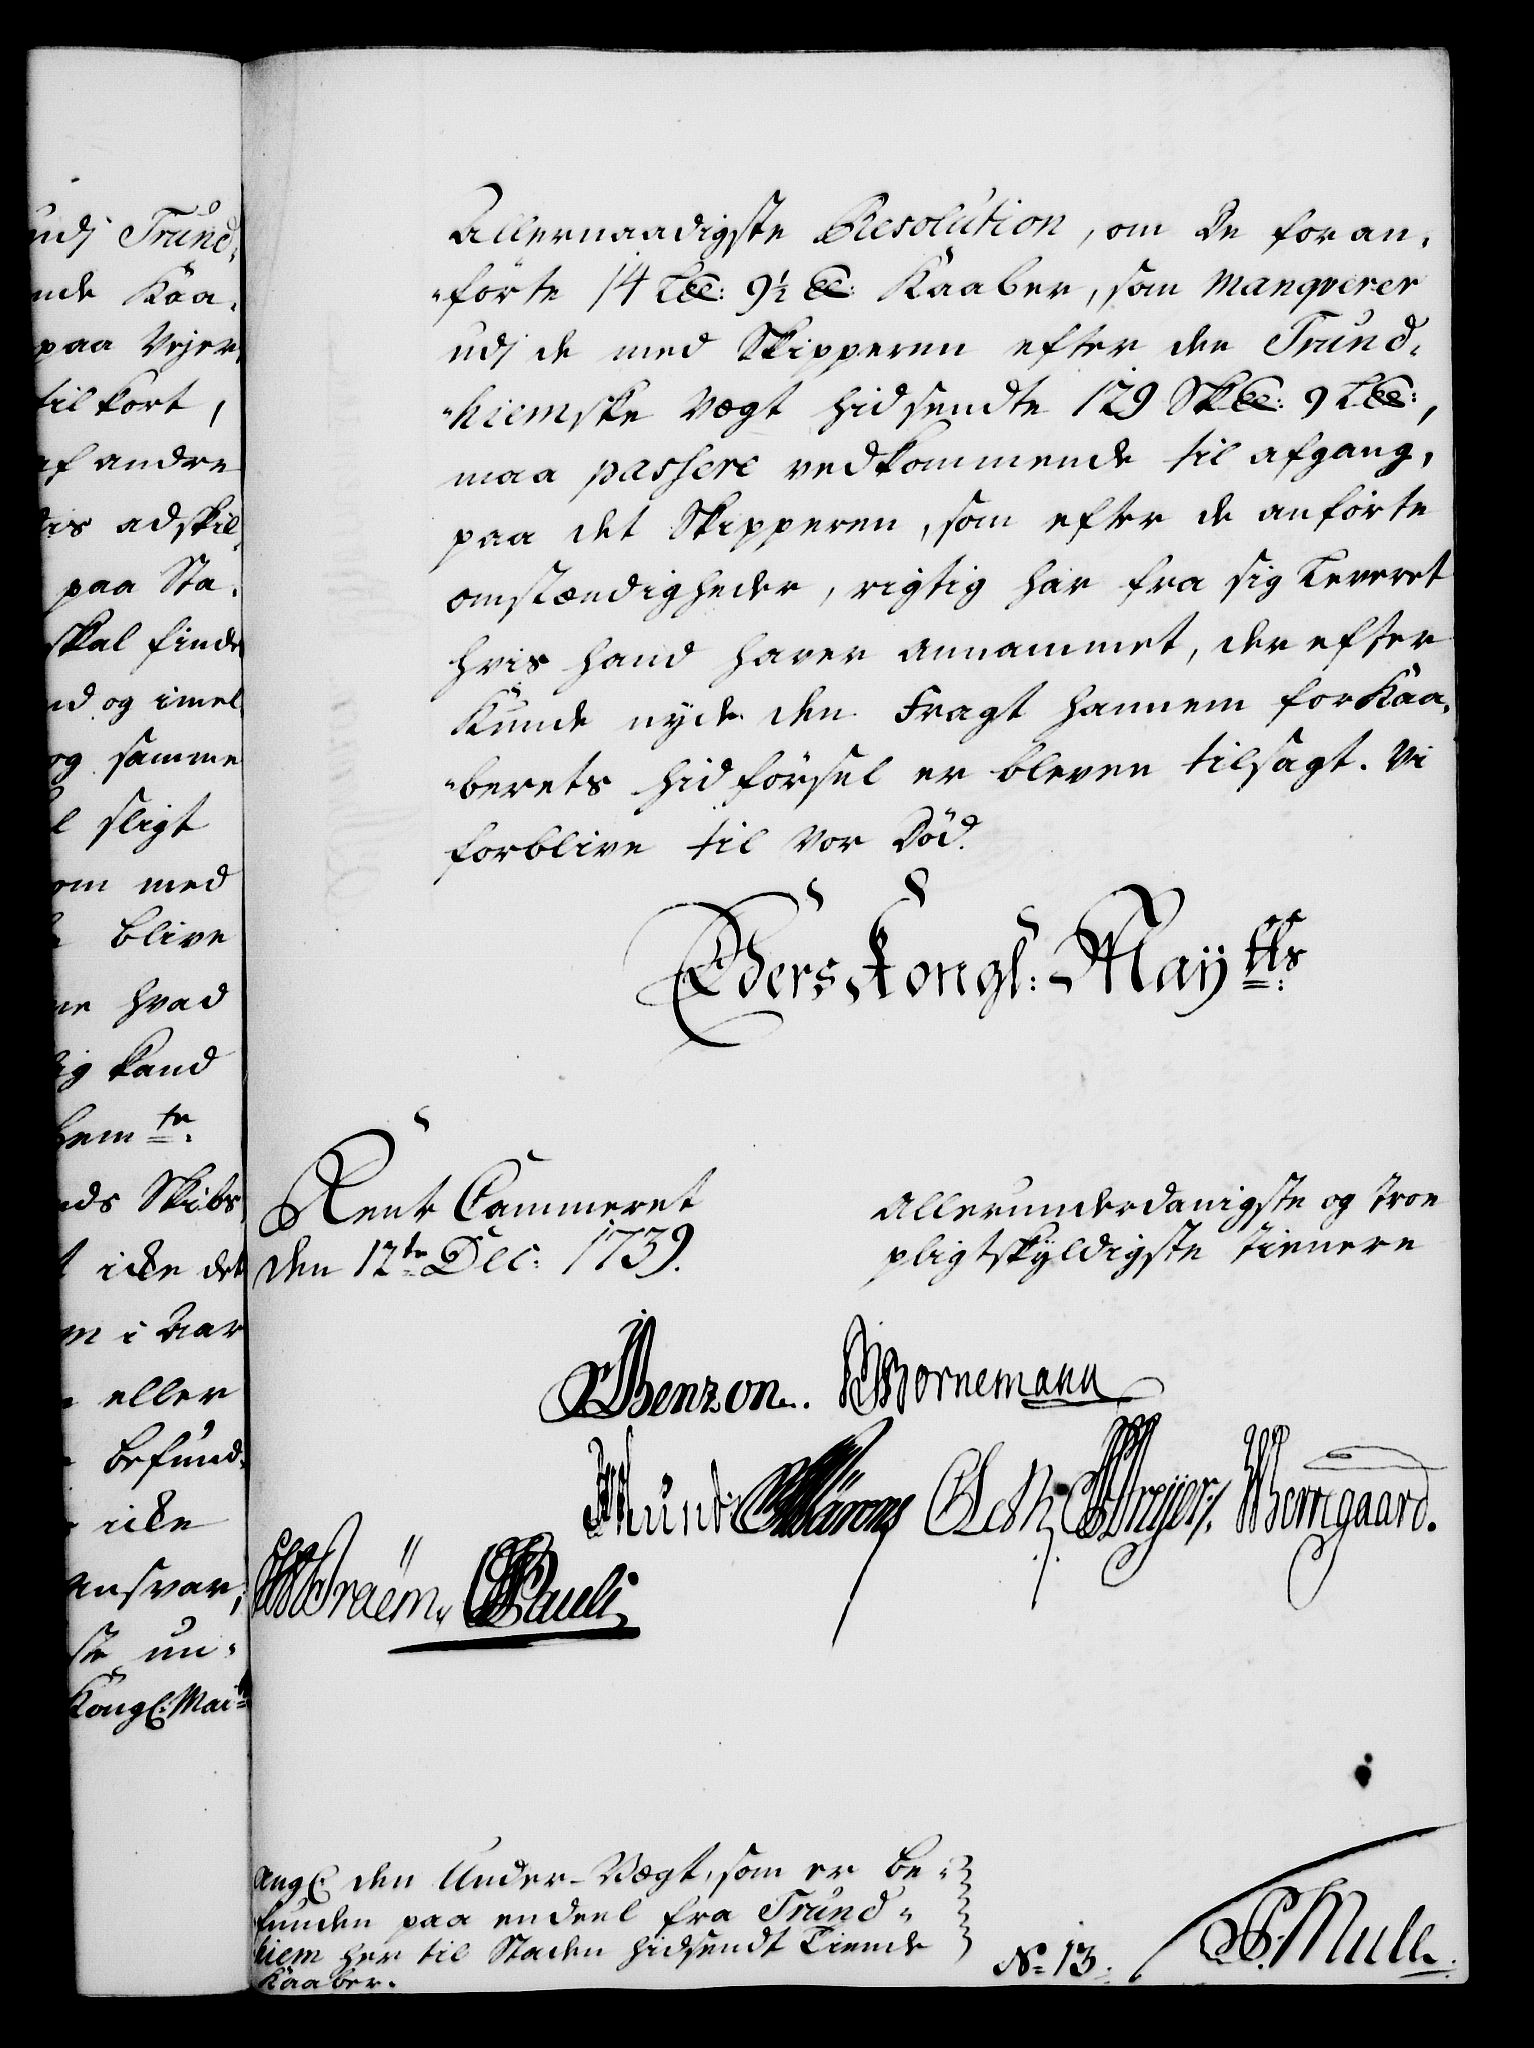 udj Trund,
nde Kaa,
paa Vejer,
til kort,
af andre
adskil,
paa Sta,
skal finde
og imel,
og samme
sligt
om med
blive
hvad
kand
ds Skibs,
icke det
i Aar
eller
befund,
icke
ansvar,
un,
Kongl: Mai
Allernaadigste Resolution, om de for an,
"förte 14 L℔: 9½ ℔: Kaaber, som manqverer
udj de med Skipperen efter den Trund,
"hiemske Vægt hidsendte 129 Sk℔: 9 L℔:,
maa passere vedkommende til afgang,
paa det Skipperen, som efter de anförte
omstændigheder, rigtig har fra sig Leveret
hvis hand haver annammet, der efter
Kunde nyde den Fragt hannem for Kaa,
"berets hidförsel er bleven tilsagt. Vi
forblive til Vor Död.
Eders Kongl: Maytts:
Rente Cammeret
den 12te Dec: 1739.
Allerunderdanigste og troe
pligtskyldigste tienere
Benzon. Bornemann
Bærregaard.
Fraëm. Pauli
Angl. den Under-Vægt, som er be,
funden paa endeel fra Trund,
hiem her til Staden hidsendt Tiende
Kaaber.
No 13.
Mule.